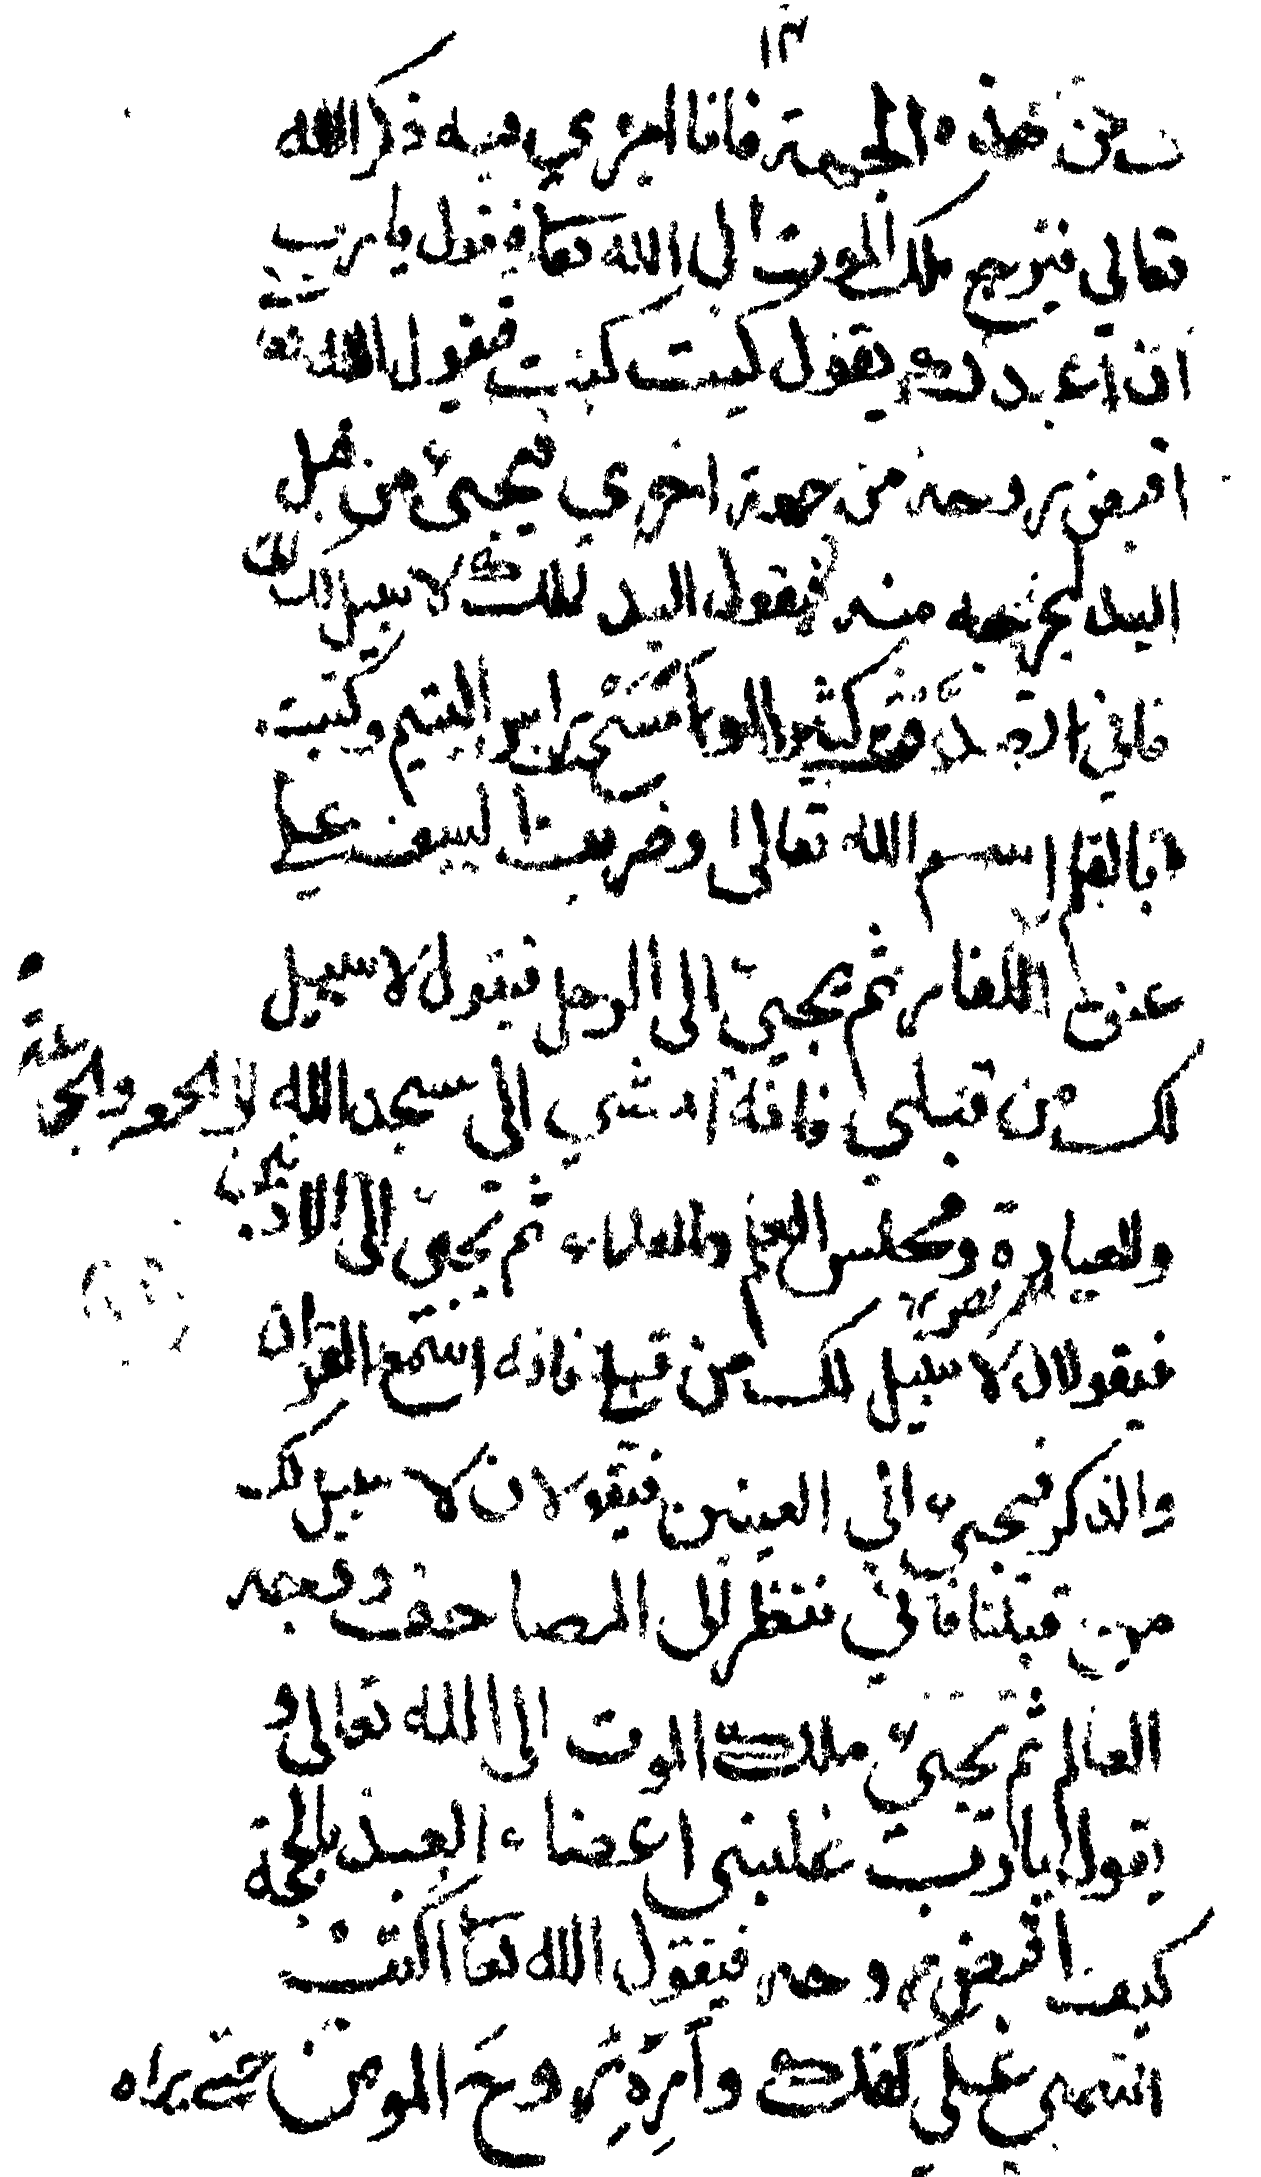 ١٣
ت من هذه الجهة فانا اجري فيه ذكر الله
تعالي فيرجع ملك الموت الي الله تعا فيقول يا رب
ان عبدك يقول كيت كيت فيقول الله تعا
اقبض روحه من جهة اخري فيجيئ من قبل
اليد ليخرجه منه فيقول اليد لملك لا سبيل لك
فاني تصدقت كثيرا ومسحت راس اليتيم وكتبت
بالقلم اسم الله تعالى وضربت السيف علي
عنق الكفار ثم يجيئ الى الرجل فيقول لا سبيل
لك من قبلي فانه امشي الى مسجد الله والجمعة
والعيادة ومجلس العلم والعلماء ثم يجيئ الى الاذنين
فيقولان لا سبيل لك من قبل فانه استمع القران
والذكر فيجيئ الي العينين فيقولان لا سبيل لك
من قبلنا فاني ننظر الى المصاحف ووجه
العالم ثم يجيئ ملك الموت الى الله تعالى و
يقول يا رب غلبني اعضاء العبد بالحجة
كيف اقبض روحه فيقول الله تعا اكتب
اسمي علي كفك وامره روح المومن حتي يراه